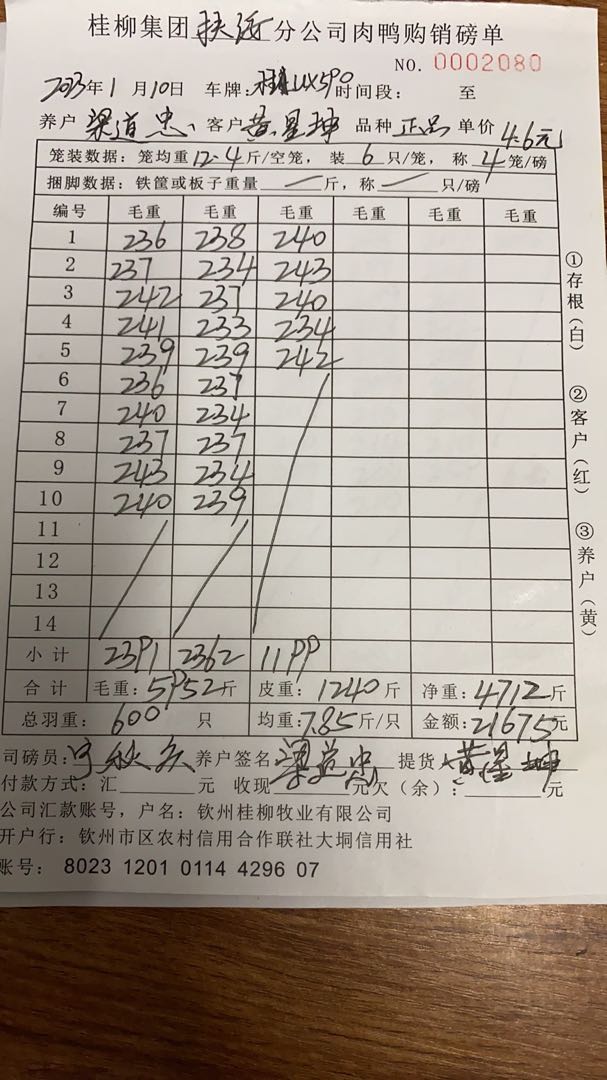 桂柳集团扶绥分公司肉鸭购销磅单
NO. 0002080
2023年1月10日 车牌: UX590 时间段: 至
养户 梁道忠 客户 黄星坤 品种 正品 单价 4.6元
笼装数据: 笼均重12.4斤/空笼, 装6只/笼, 称4笼/磅
捆脚数据: 铁筐或板子重量 斤, 称 只/磅
编号 毛重 毛重 毛重 毛重 毛重 毛重
1 236 238 240
2 237 234 243
3 242 237 240
4 241 233 234
5 239 239 242
6 236 237
7 240 234
8 237 237
9 243 234
10 240 239
11
12
13
14
小计 2391 2362 1199
合计 毛重: 5952斤 皮重: 1240斤 净重: 4712斤
总羽重: 600 只 均重: 7.85斤/只 金额: 21675元
司磅员: 养户签名 梁道忠 提货 黄星坤
付款方式: 汇 元 收现 元欠(余): 元
公司汇款账号, 户名: 钦州桂柳牧业有限公司
开户行: 钦州市区农村信用合作联社大垌信用社
账号: 8023 1201 0114 4296 07
①存根(白)
②客户(红)
③养户(黄)